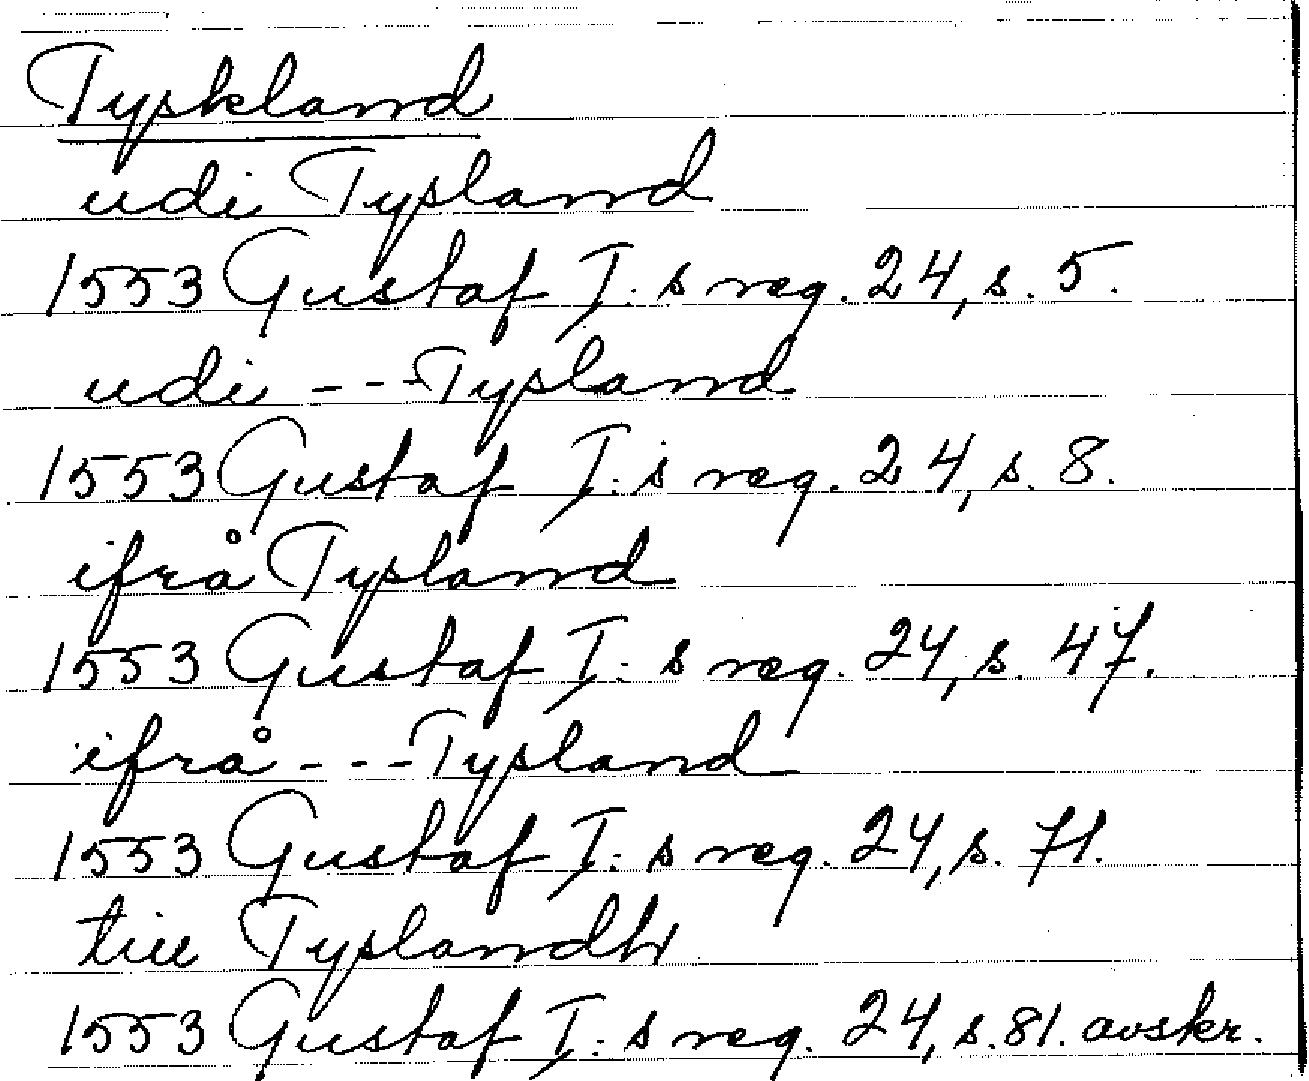 Tyskland
udi Tysland
1553 Gustaf I: s reg. 24, s. 5.
udi --- Tysland
1553 Gustaf I: s reg. 24, s. 8.
ifrå Tysland
1553 Gustaf I: s reg. 24, s. 47.
ifrå --- Tysland
1553 Gustaf I: s reg. 24, s. 71.
till Tyslandh
1553 Gustaf I: s reg. 24, s. 81. avskr.